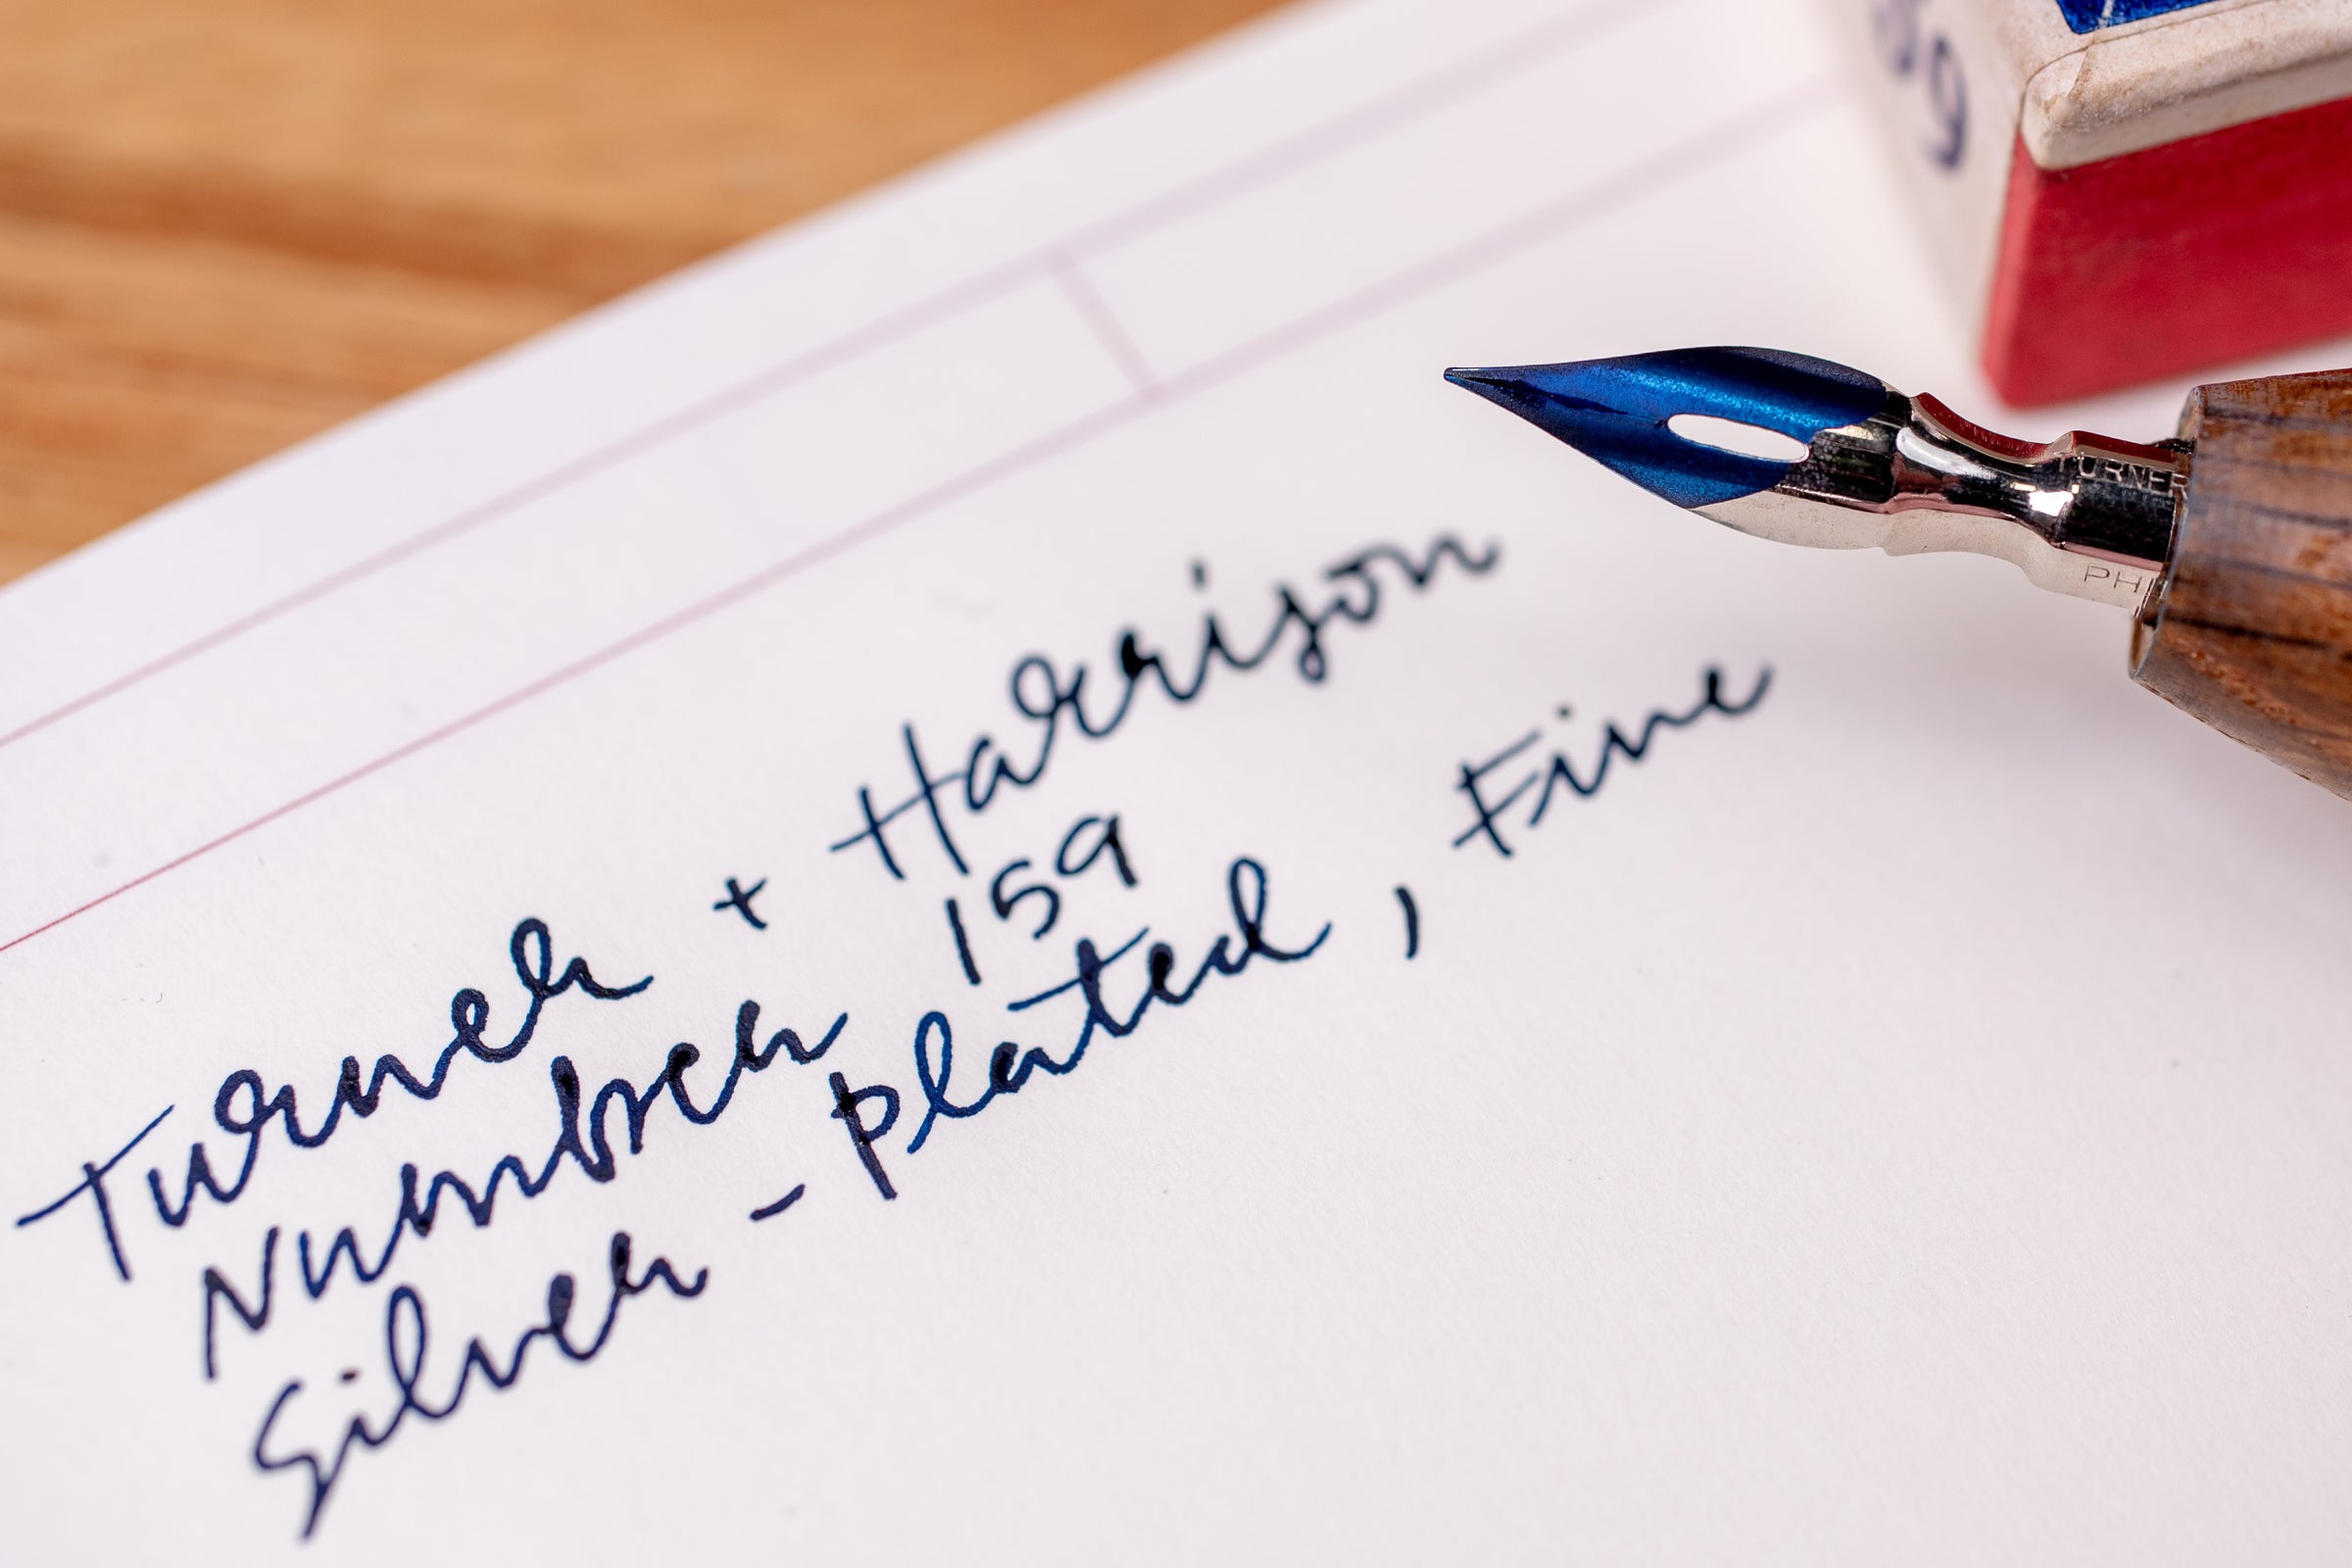 Turner + Harrison
Number 159
Silver-plated, Fine
59
TURNER
PH